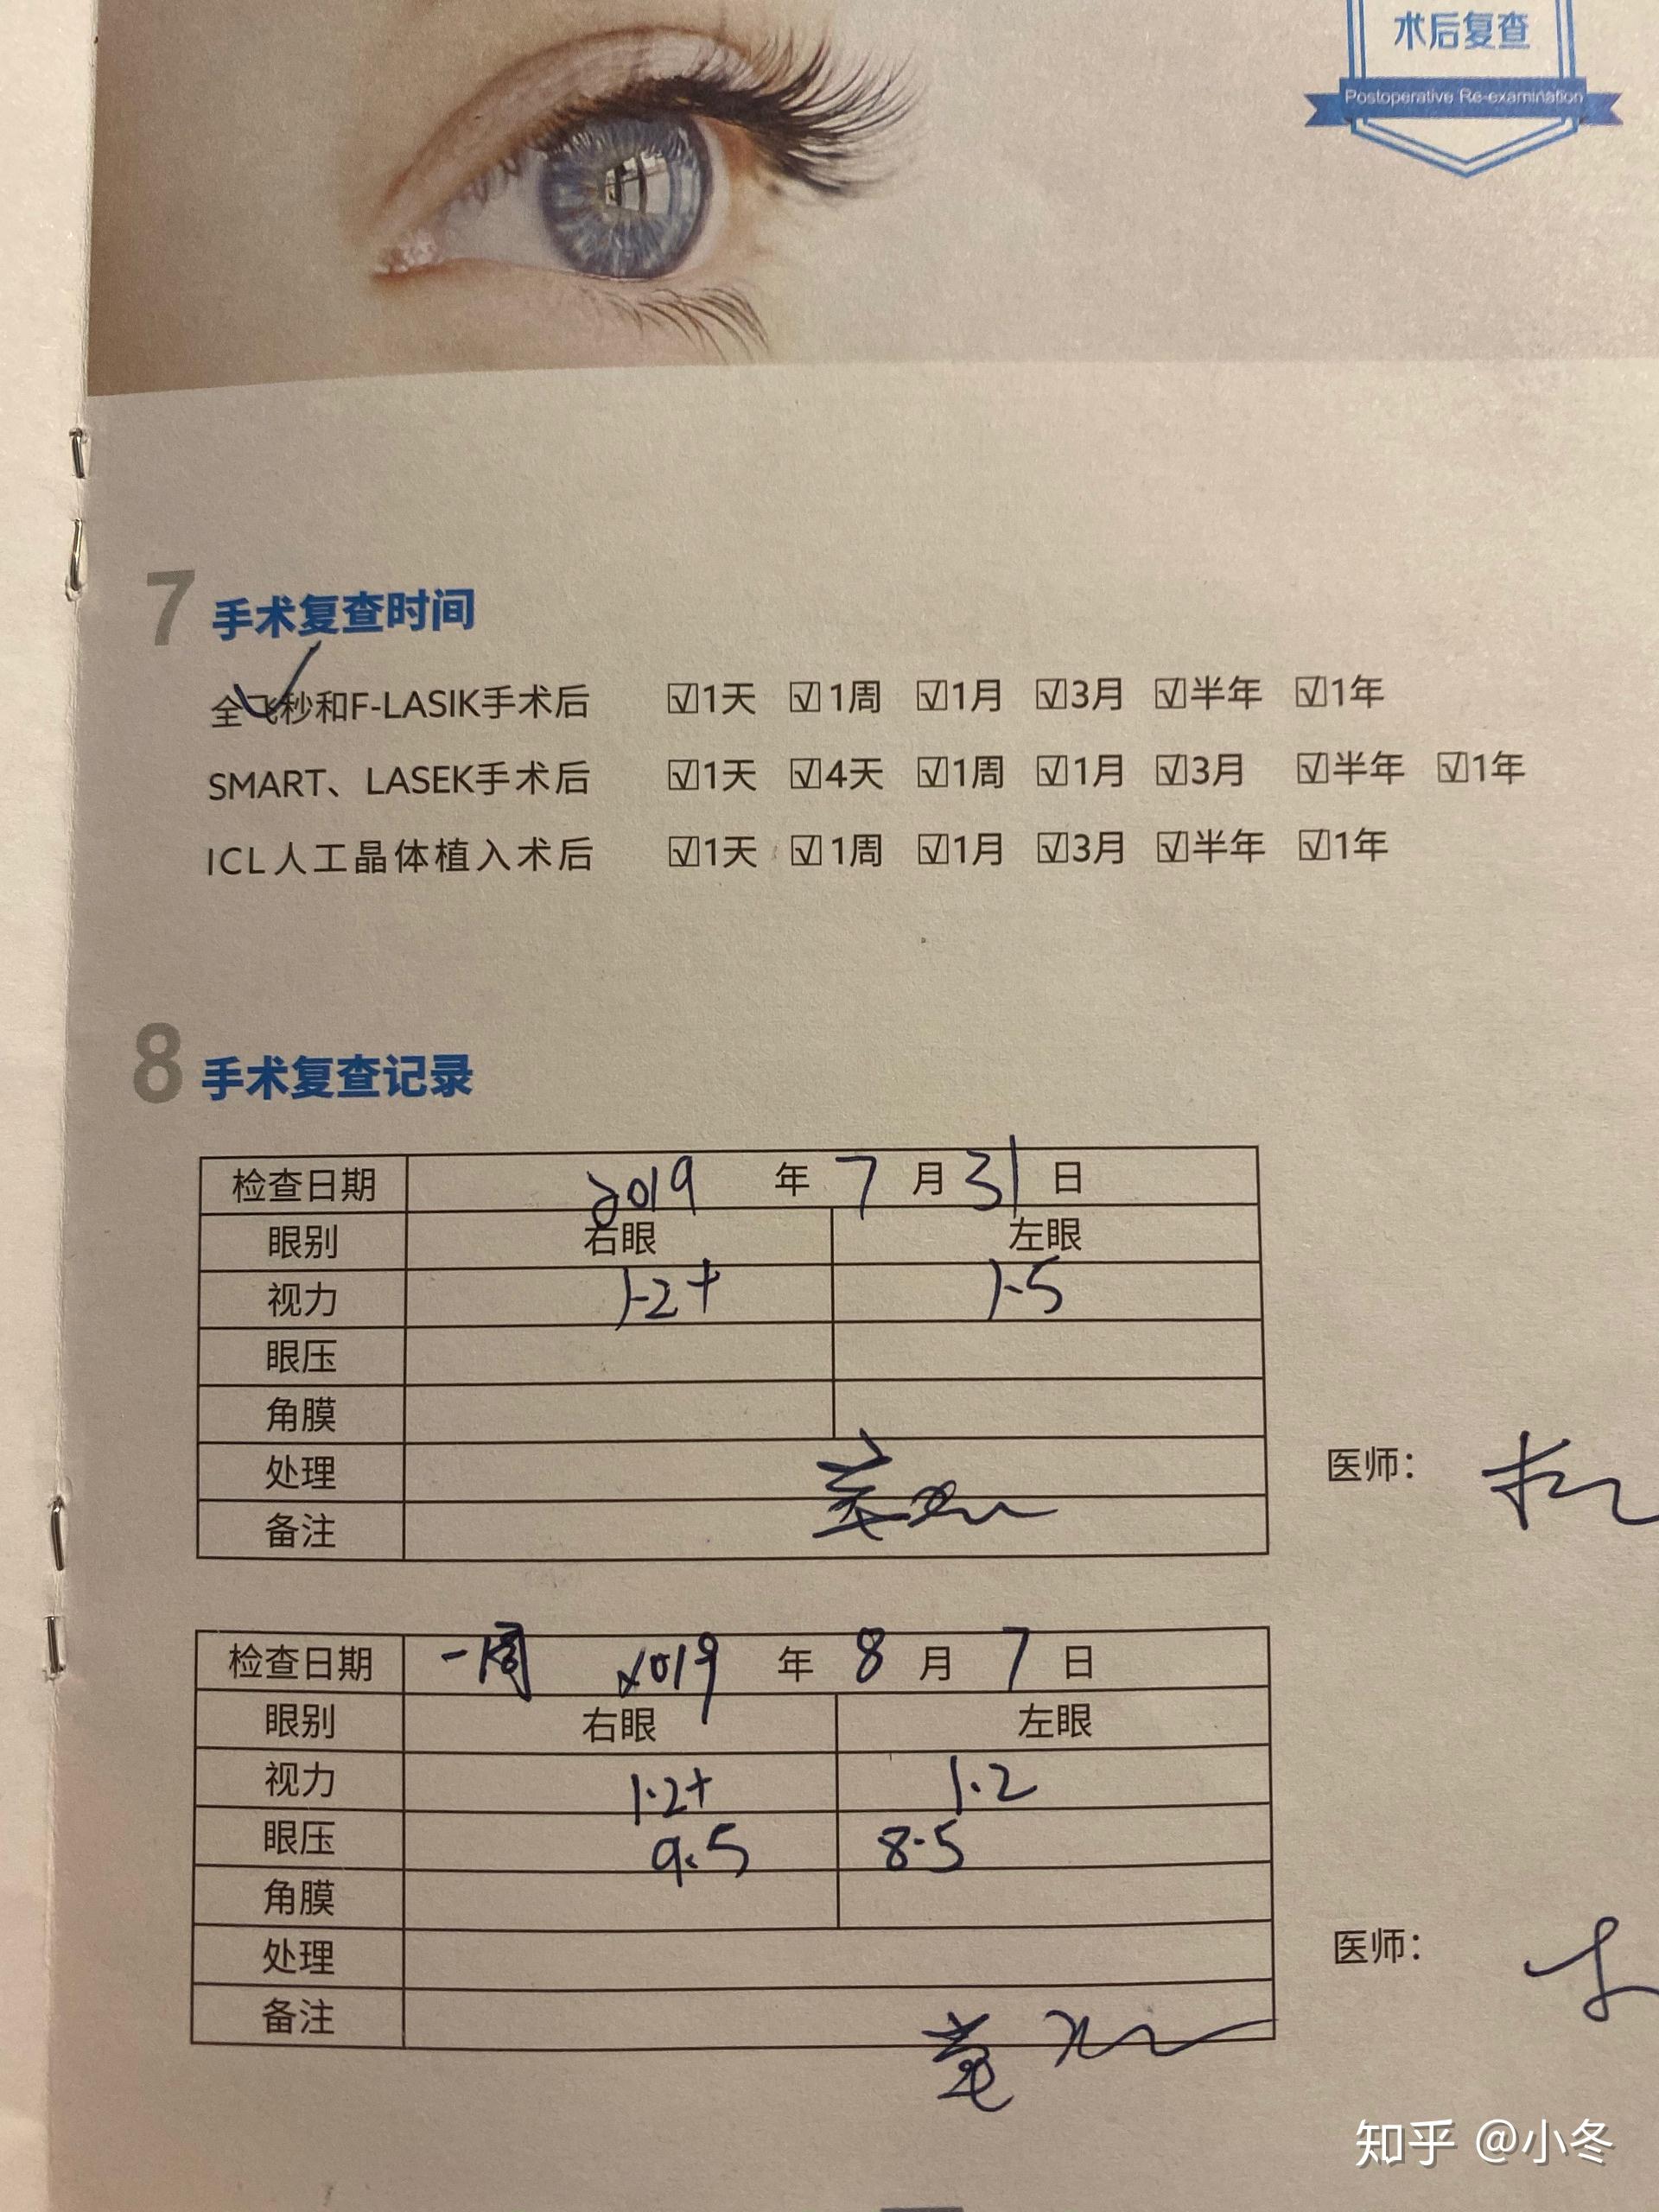 术后复查
Postoperative Re-examination
7 手术复查时间
全飞秒和F-LASIK手术后 ☑1天 ☑1周 ☑1月 ☑3月 ☑半年 ☑1年
SMART、LASEK手术后 ☑1天 ☑4天 ☑1周 ☑1月 ☑3月 ☑半年 ☑1年
ICL人工晶体植入术后 ☑1天 ☑1周 ☑1月 ☑3月 ☑半年 ☑1年
8 手术复查记录
检查日期 2019 年 7 月 31 日
眼别 右眼 左眼
视力 1.2+ 1.5
眼压
角膜
处理
医师：
备注
检查日期 一周 2019 年 8 月 7 日
眼别 右眼 左眼
视力 1.2+ 1.2
眼压 9.5 8.5
角膜
处理
医师：
备注
知乎 @小冬